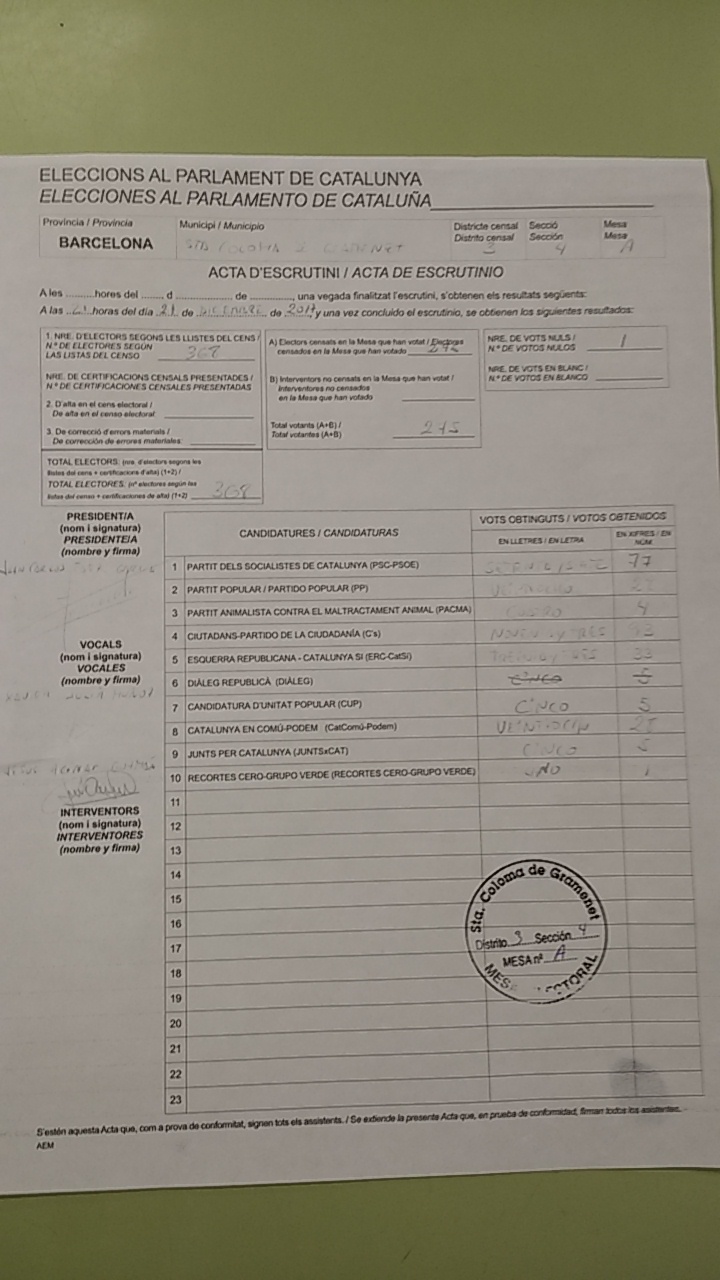 ELECCIONS AL PARLAMENT DE CATALUNYA
ELECCIONES AL PARLAMENTO DE CATALUÑA
Provincia / Provincia
Municipi / Municipio
Districte censal
Distrito censal
Secció
Sección
Mesa
Mesa
BARCELONA
3
4
A
ACTA D'ESCRUTINI / ACTA DE ESCRUTINIO
A les ..........hores del ....... d ................... de ............., una vegada finalitzat l'escrutini, s'obtenen els resultats següents:
A las horas del día 21 de DICIEMBRE de 2017 y una vez concluído el escrutinio, se obtienen los siguientes resultados:
1. NRE. D'ELECTORS SEGONS LES LLISTES DEL CENS /
N.º DE ELECTORES SEGÚN
LAS LISTAS DEL CENSO 368
NRE. DE CERTIFICACIONS CENSALS PRESENTADES /
N.º DE CERTIFICACIONES CENSALES PRESENTADAS
2. D'alta en el cens electoral /
De alta en el censo electoral:
3. De correcció d'errors materials /
De corrección de errores materiales:
TOTAL ELECTORS: (nre. d'electors segons les
llistes del cens + certificacions d'alta) (1+2) /
TOTAL ELECTORES: (nº electores según las
listas del censo + certificaciones de alta) (1+2) 368
A) Electors censats en la Mesa que han votat / Electores
censados en la Mesa que han votado
B) Interventors no censats en la Mesa que han votat /
Interventores no censados
en la Mesa que han votado
Total votants (A+B) /
Total votantes (A+B) 275
NRE. DE VOTS NULS /
N.º DE VOTOS NULOS 1
NRE. DE VOTS EN BLANC /
N.º DE VOTOS EN BLANCO
PRESIDENT/A
(nom i signatura)
PRESIDENTE/A
(nombre y firma)
VOCALS
(nom i signatura)
VOCALES
(nombre y firma)
INTERVENTORS
(nom i signatura)
INTERVENTORES
(nombre y firma)
CANDIDATURES / CANDIDATURAS
VOTS OBTINGUTS / VOTOS OBTENIDOS
EN LLETRES / EN LETRA
EN XIFRES / EN NÚM.
1 PARTIT DELS SOCIALISTES DE CATALUNYA (PSC-PSOE) 77
2 PARTIT POPULAR / PARTIDO POPULAR (PP)
3 PARTIT ANIMALISTA CONTRA EL MALTRACTAMENT ANIMAL (PACMA) CUATRO 4
4 CIUTADANS-PARTIDO DE LA CIUDADANÍA (C's) NOVENTA Y TRES 93
5 ESQUERRA REPUBLICANA - CATALUNYA SI (ERC-CatSí) TREINTA Y TRES 33
6 DIÀLEG REPUBLICÀ (DIÀLEG) CINCO 5
7 CANDIDATURA D'UNITAT POPULAR (CUP) CINCO 5
8 CATALUNYA EN COMÚ-PODEM (CatComú-Podem)
9 JUNTS PER CATALUNYA (JUNTSxCAT) CINCO 5
10 RECORTES CERO-GRUPO VERDE (RECORTES CERO-GRUPO VERDE) UNO 1
11
12
13
14
15
16
17
18
19
20
21
22
23
Sta. Coloma de Gramenet
Distrito 3 Sección 4
MESA nº A
MESA ELECTORAL
S'estén aquesta Acta que, com a prova de conformitat, signen tots els assistents. / Se extiende la presente Acta que, en prueba de conformidad, firman todos los asistentes.
AEM